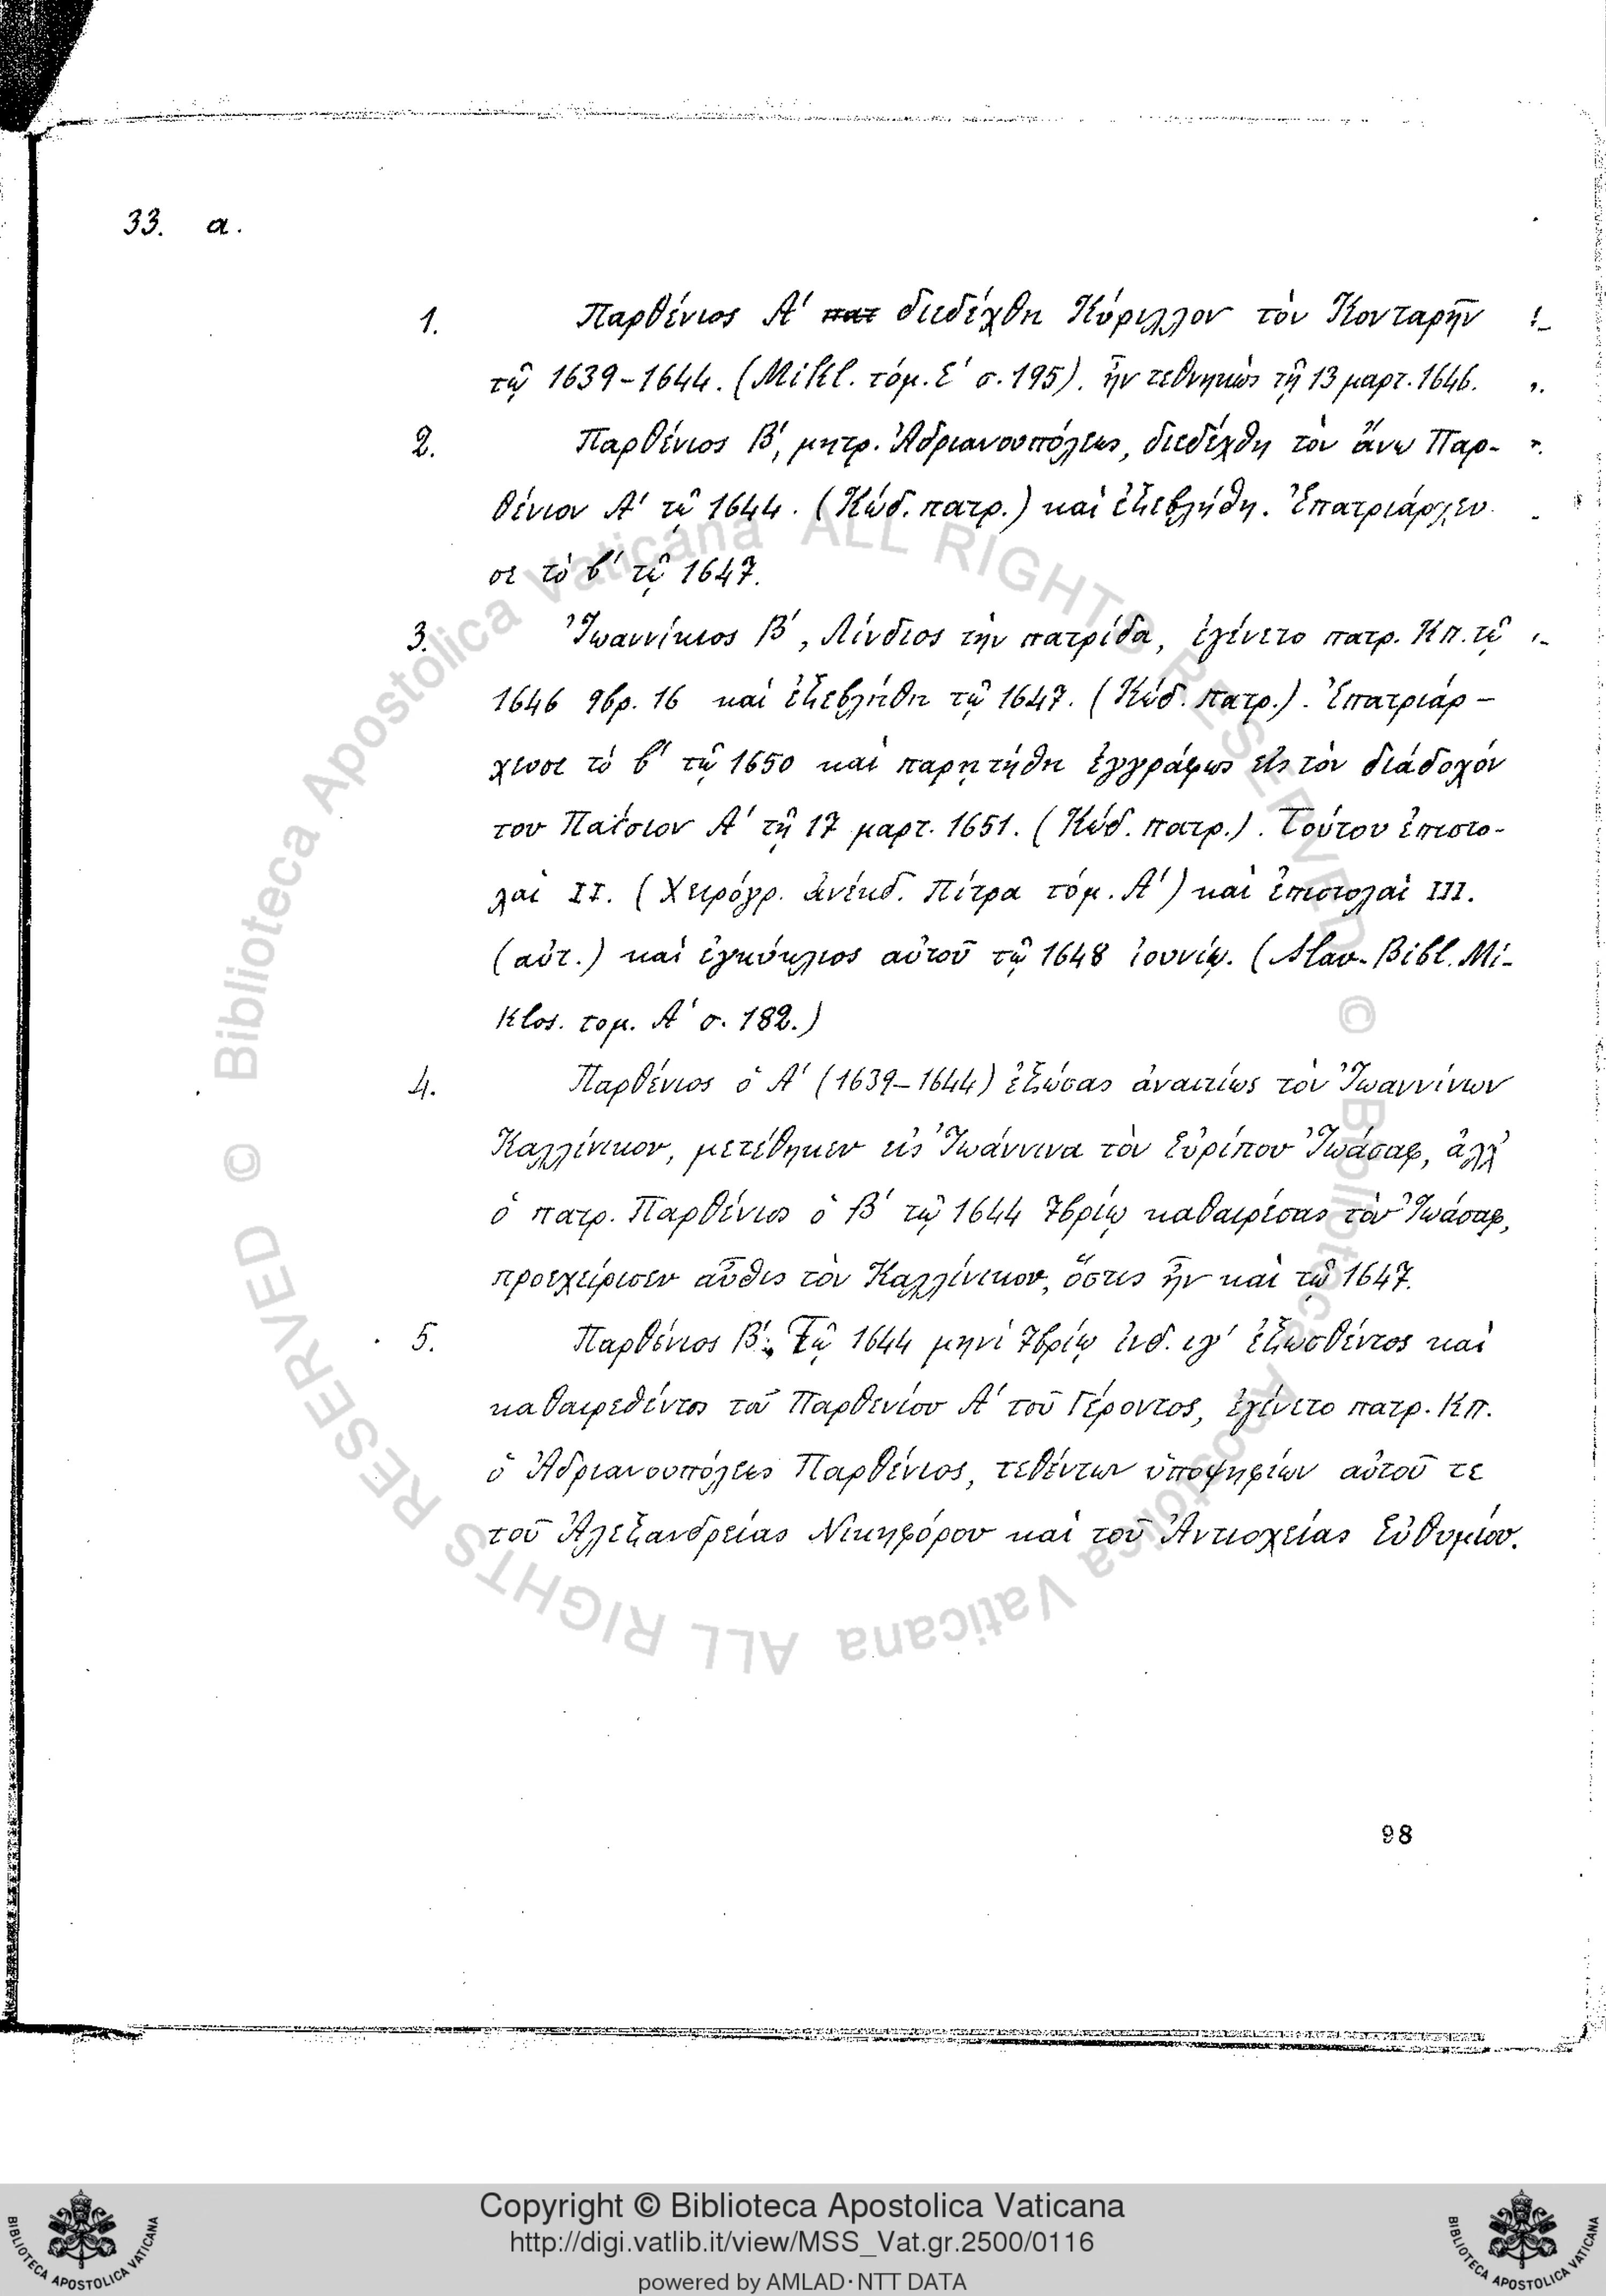 33. α.
1. Παρθένιος Α΄ πατ διεδέχθη Κύριλλον τὸν Κονταρῆν
τῷ 1639-1644. (Mikl. τόμ. Ε΄ σ. 195). ἦν τεθνηκὼς τῇ 13 μαρτ. 1646.
2. Παρθένιος Β΄, μητρ. Ἀδριανουπόλεως, διεδέχθη τὸν ἄνω Παρ-
θένιον Α΄ τῷ 1644. (Κώδ. πατρ.) καὶ ἐξεβλήθη. Ἐπατριάρχευ
σε τὸ β΄ τῷ 1647.
3. Ἰωαννίκιος Β΄, Λίνδιος τὴν πατρίδα, ἐγένετο πατρ. Κπ. τῷ
1646 9βρ. 16 καὶ ἐξεβλήθη τῷ 1647. (Κώδ. πατρ.). Ἐπατριάρ-
χευσε τὸ β΄ τῷ 1650 καὶ παρῃτήθη ἐγγράφως εἰς τὸν διάδοχόν
του Παΐσιον Α΄ τῇ 17 μαρτ. 1651. (Κώδ. πατρ.). Τούτου ἐπιστο-
λαὶ II. (Χειρόγρ. ἀνέκδ. Πέτρα τόμ. Α΄) καὶ ἐπιστολαὶ III.
(αὐτ.) καὶ ἐγκύκλιος αὐτοῦ τῷ 1648 ἰουνίῳ. (Slav. Bibl. Mi-
klos. τομ. Α΄ σ. 182.)
4. Παρθένιος ὁ Α΄ (1639-1644) ἐξώσας ἀναιτίως τὸν Ἰωαννίνων
Καλλίνικον, μετέθηκεν εἰς Ἰωάννινα τὸν Εὐρίπου Ἰωάσαφ, ἀλλ'
ὁ πατρ. Παρθένιος ὁ Β΄ τῷ 1644 7βρίῳ καθαιρέσας τὸν Ἰωάσαφ,
προεχείρισεν αὖθις τὸν Καλλίνικον, ὅστις ἦν καὶ τῷ 1647.
5. Παρθένιος Β΄. Τῷ 1644 μηνὶ 7βρίῳ ἰνδ. ιγ΄ ἐξωσθέντος καὶ
καθαιρεθέντος τοῦ Παρθενίου Α΄ τοῦ Γέροντος, ἐγένετο πατρ. Κπ.
ὁ Ἀδριανουπόλεως Παρθένιος, τεθέντων ὑποψηφίων αὐτοῦ τε
τοῦ Ἀλεξανδρείας Νικηφόρου καὶ τοῦ Ἀντιοχείας Εὐθυμίου.
98
© Biblioteca Apostolica Vaticana ALL RIGHTS RESERVED
© Biblioteca Apostolica Vaticana ALL RIGHTS RESERVED
Copyright © Biblioteca Apostolica Vaticana
http://digi.vatlib.it/view/MSS_Vat.gr.2500/0116
powered by AMLAD·NTT DATA
BIBLIOTECA APOSTOLICA VATICANA
BIBLIOTECA APOSTOLICA VATICANA